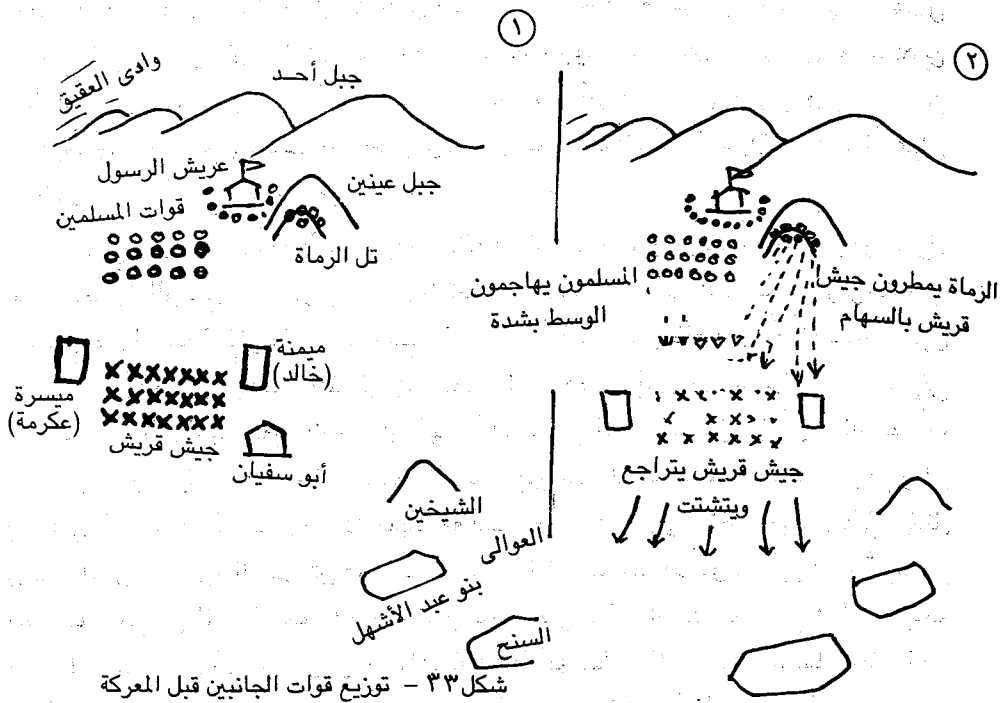 ١
٢
وادى العقيق
جبل أحـد
عريش الرسول
جبل عينين
قوات المسلمين
تل الرماة
ميمنة
(خالد)
ميسرة
(عكرمة)
جيش قريش
أبو سفيان
الشيخين
العوالى
بنو عبد الأشهل
السنح
الرماة يمطرون جيش
قريش بالسهام
المسلمون يهاجمون
الوسط بشدة
جيش قريش يتراجع
ويتشتت
شكل ٣٣ – توزيع قوات الجانبين قبل المعركة